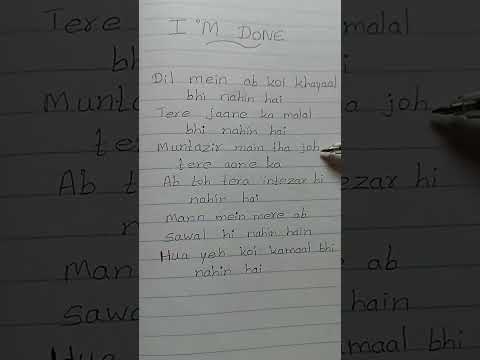 I'M DONE
Dil mein ab koi khayaal
bhi nahin hai
Tere jaane ka malal
bhi nahin hai
Muntazir main tha joh
tere aane ka
Ab toh tera intezar hi
nahin hai
Mann mein mere ab
sawal hi nahin hain
Hua yeh koi kamaal bhi
nahin hai